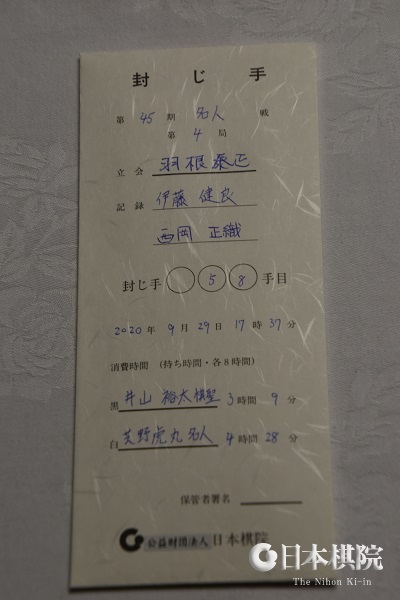 封じ手
第 45 期 名人 戦
第 4 局
立会 羽根泰正
記録 伊藤 健良
西岡 正織
封じ手 5 8 手目
2020年 9月 29日 17時 37分
消費時間 (持ち時間・各8時間)
黒 井山 裕太棋聖 3時間 9分
白 芝野虎丸名人 4時間 28分
保管者署名
公益財団法人 日本棋院
日本棋院
The Nihon Ki-in